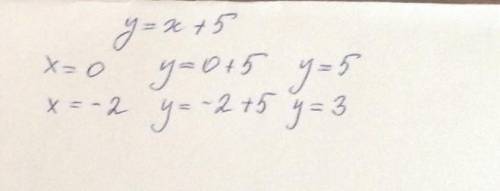 y = x + 5
x = 0 y = 0 + 5 y = 5
x = -2 y = -2 + 5 y = 3